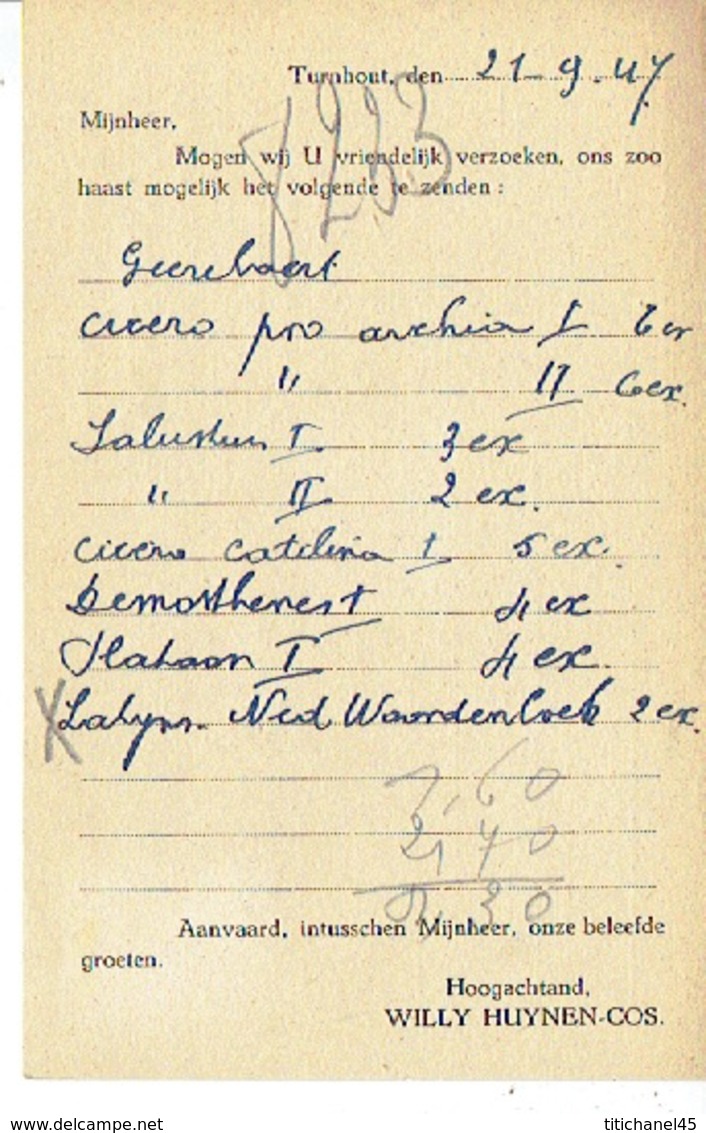 Turnhout, den 21-9-47
8233
Mijnheer,
Mogen wij U vriendelijk verzoeken, ons zoo
haast mogelijk het volgende te zenden :
Geerebaert
Cicero pro archia I 6 ex
" II 6 ex.
Salustius I 3 ex
" II 2 ex.
Cicero Catilina I 5 ex.
Demosthenes I 4 ex
I 4 ex.
X Latijn. Ned Woordenboek 2 ex.
,60
2,70
,30
Aanvaard, intusschen Mijnheer, onze beleefde
groeten.
Hoogachtand,
WILLY HUYNEN-COS.
www.delcampe.net
titichanel45